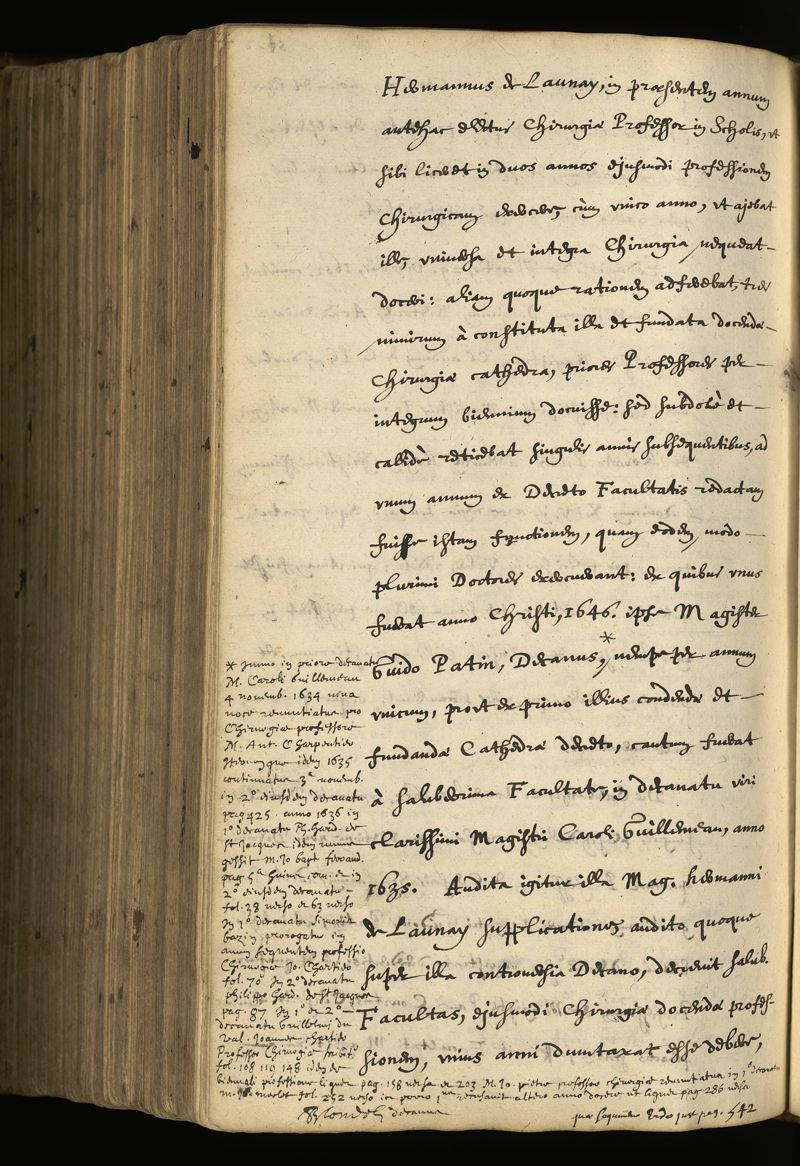 Hermannus de Launay, in præsentem annum
antehac electus Chirurgiæ Professor in Scholis, vt
sibi liceret in duos annos ejusmodi professionem
Chirurgicam exercere, cùm vnico anno, vt ajebat
ille, vniuersa et integra Chirurgia nequeat
doceri: aliam quoque rationem adferebat,
nimirum à constituta illa et fundata docendæ
Chirurgiæ cathedra, priores Professores per
integrum biennium docuisse: sed subdolè et
callidè reticebat singulis annis subsequentibus, ad
vnum annum ex Decreto Facultatis redactam
fuisse istam functionem, quam eodem modo
plurimi Doctores exercuerant: ex quibus vnus
fuerat anno Christi, 1646. ipse Magister
Guido Patin, Decanus,* nempe per annum
vnicum, prout ex primo illius condendæ et
fundandæ Cathedræ decreto, cautum fuerat
à saluberrima Facultate, in decanatu viri
clarissimi Magistri Caroli Guillemeau, anno
1635. Audita igitur illa Mag. Hermanni
de Launay supplicatione, audito quoque
super illa controuersia Decano, decreuit salub.
Facultas, ejusmodi Chirurgiæ docendæ profes-
sionem, vnius anni duntaxat esse debere,
* Immo in priore decanatu
M. Caroli Guillemeau
4 nouemb. 1634 viua
voce renuntiatur pro
Chirurgiæ professore
M. Ant. Charpentier
iterumque idem 1635
continuatur 3ª nouemb.
in 2º eiusdem decanatu
pag 425. anno 1636 in
1º decanatu Ph. Hard. de
St Jacques idem munus
gessit M. Jo bapt ferrand.
2º eiusdem decanatu
fol. 38 verso et 63 verso
In 1º decanatu Simonis
bazin prorogatur in
annum sequentem professio
Chirurgiæ Jo. Chartier
fol. 70 In 2º decanatu
philippi Hard. de St Jacques
pag. 87 In 1º et 2º
decanatu Guillelmi du
val. Joannes Chartier
Professor Chirurgiæ
fol. 168 119 148 idem de
biennali professione liquet pag. 158 versa et 203 M. Jo. pietre professor chirurgiæ renuntiatur in 1º decanatu
M. merlet fol. 252 verso altero anno docere ut liquet pag 286 versa
Blondel decanus
quæ sequuntur pag. 542